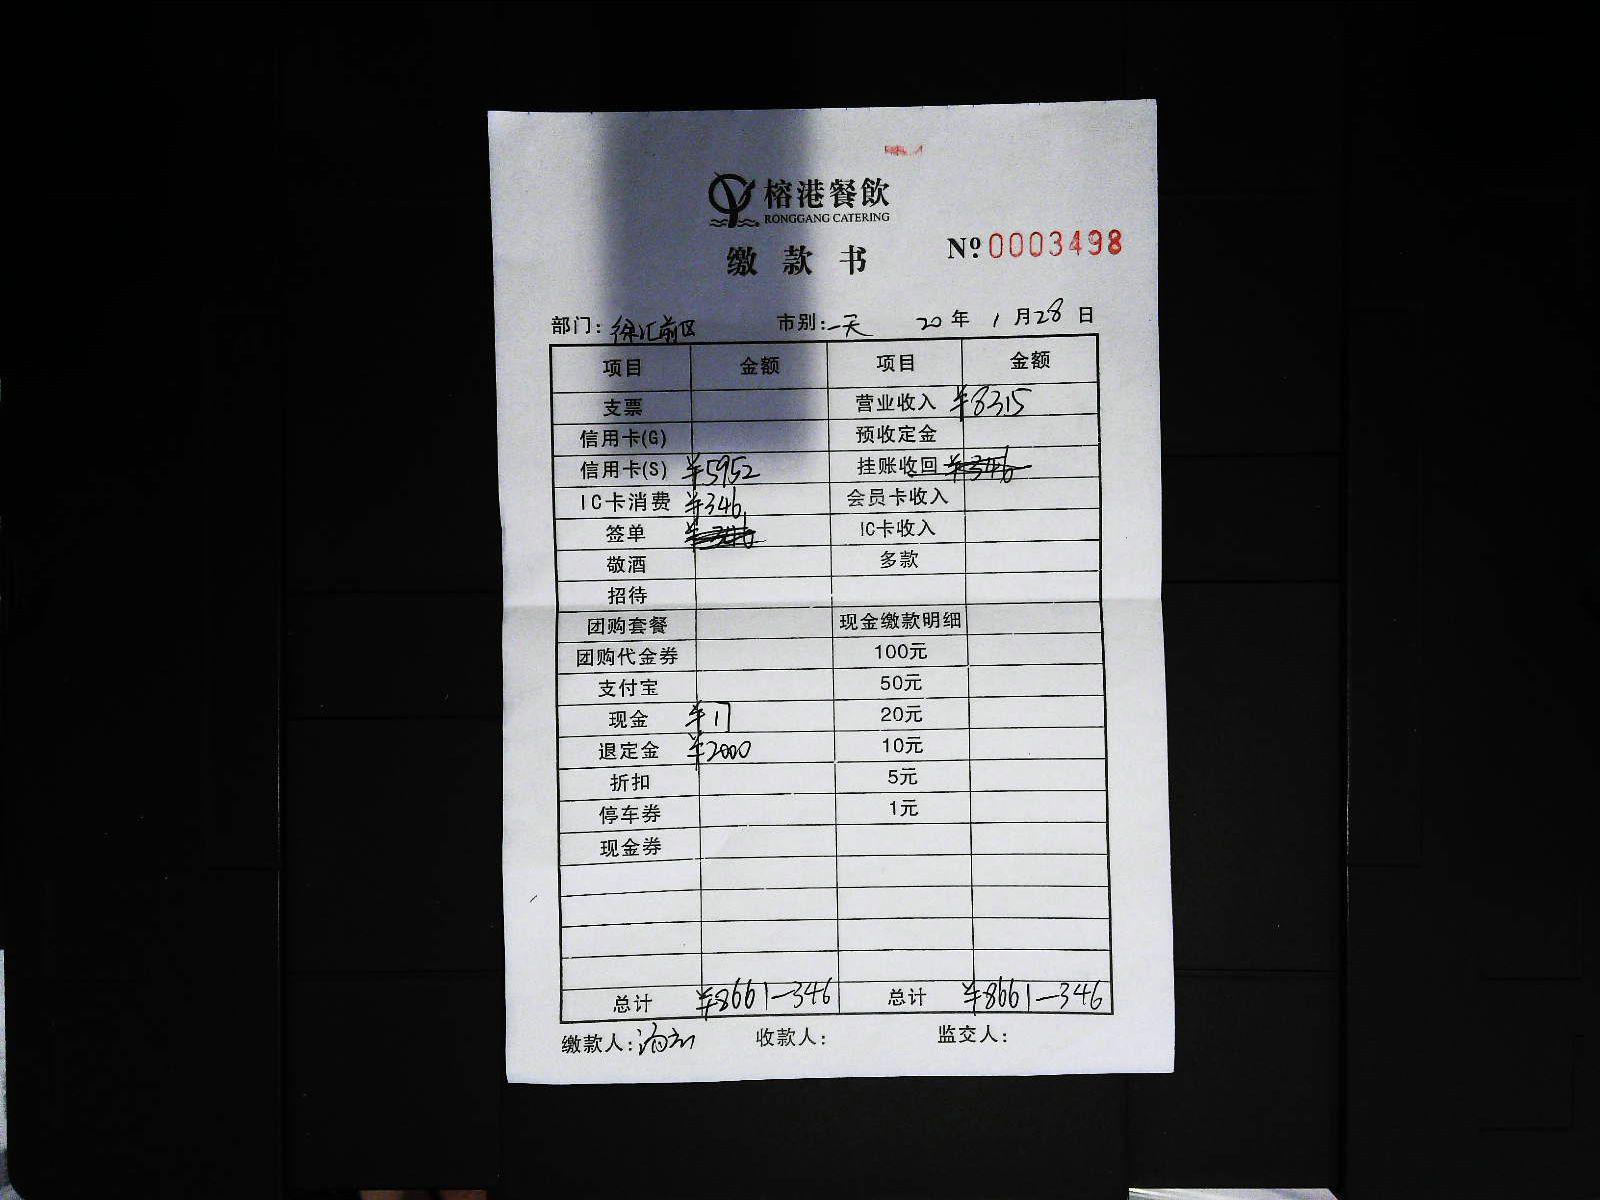 榕港餐飲
RONGGANG CATERING
缴款书 Nº 0003498
部门: 徐汇前区 市别: 一天 20 年 1 月 28 日
项目 金额 项目 金额
支票 营业收入 ¥8315
信用卡(G) 预收定金
信用卡(S) ¥5952 挂账收回 ¥346
IC卡消费 ¥346 会员卡收入
签单 ¥346 IC卡收入
敬酒 多款
招待
团购套餐 现金缴款明细
团购代金券 100元
支付宝 50元
现金 ¥17 20元
退定金 ¥2000 10元
折扣 5元
停车券 1元
现金券
总计 ¥8661-346 总计 ¥8661-346
缴款人: 收款人: 监交人: